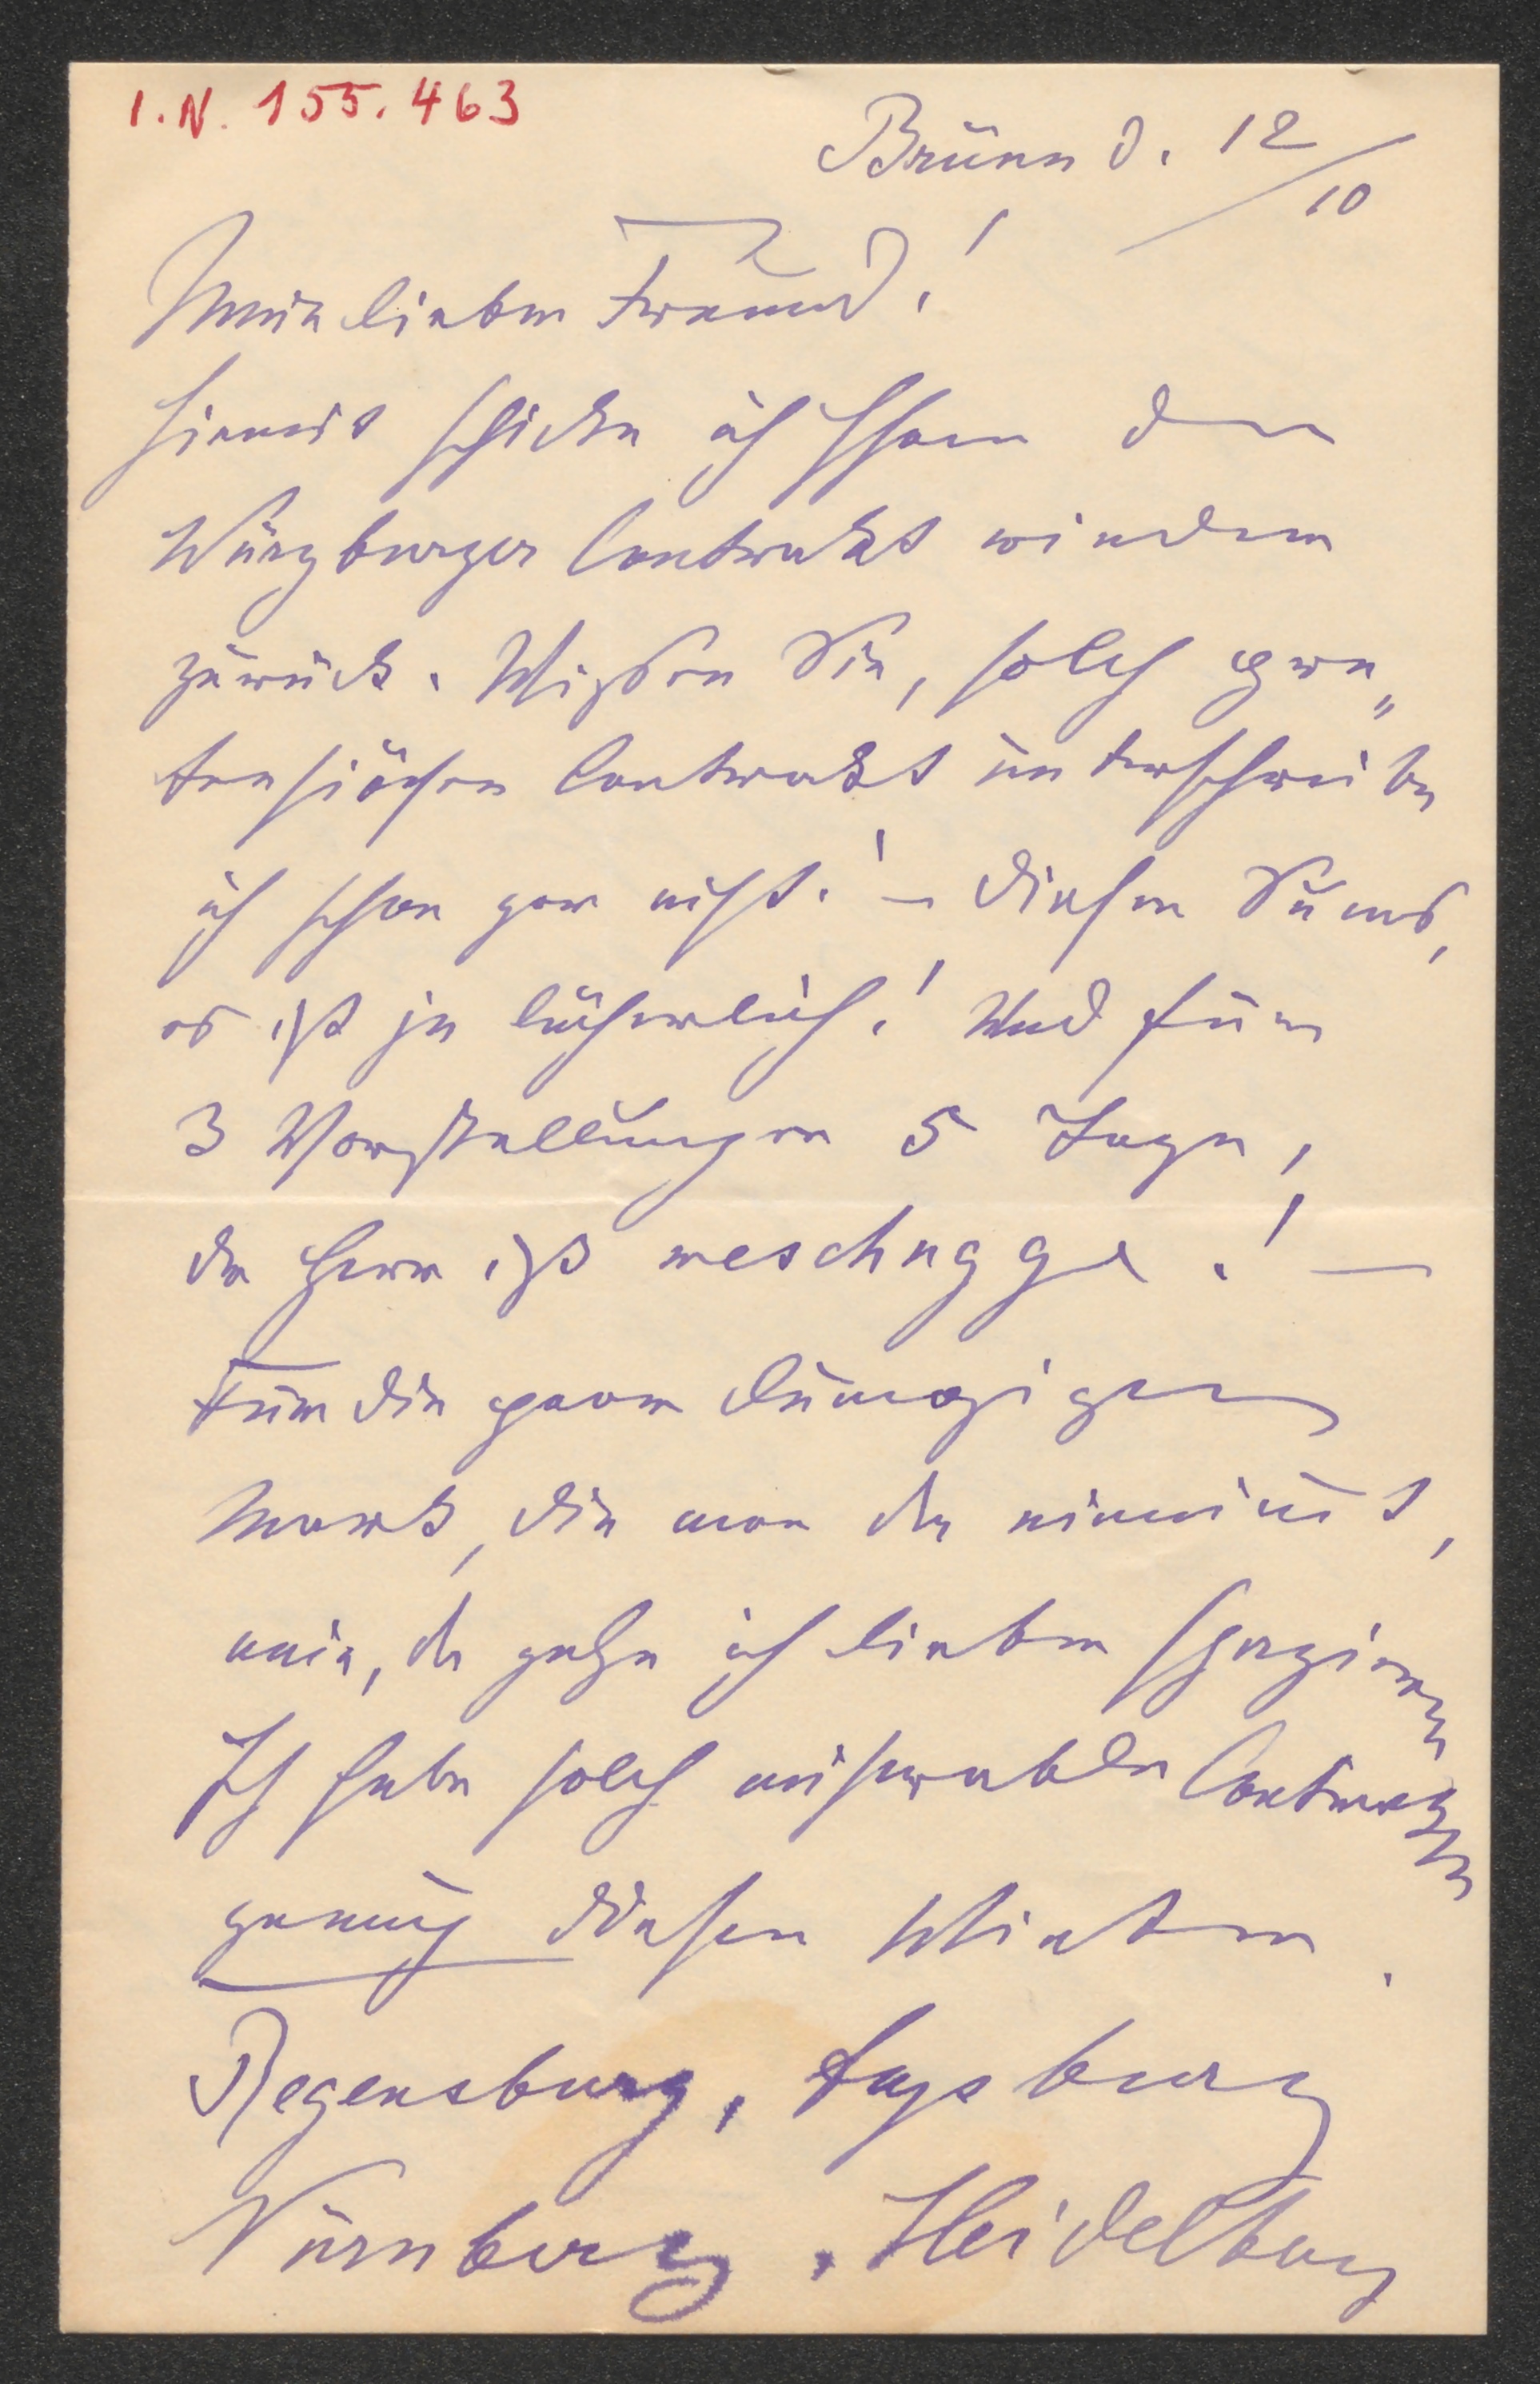 I.N. 155.463
Brünn d. 12/10
Mein lieber Freund!
hiermit schicke ich Ihnen den
Würzburger Contrakt wieder
zurück. Wissen Sie, solch pre„
tensiösen Contrakt unterschreibe
ich schon gar nicht! – Dieser Sums,
es ist ja lächerlich! Und für
3 Vorstellungen 5 Tage,
der Herr ist meschugge! –
Für die paar dumigen
Mark, die man da einnimt,
nein, da gehe ich lieber spazieren
Ich habe solch miserable Contrakte
genug diesen Winter.
Regensburg, Augsburg
Nürnberg, Heidelberg